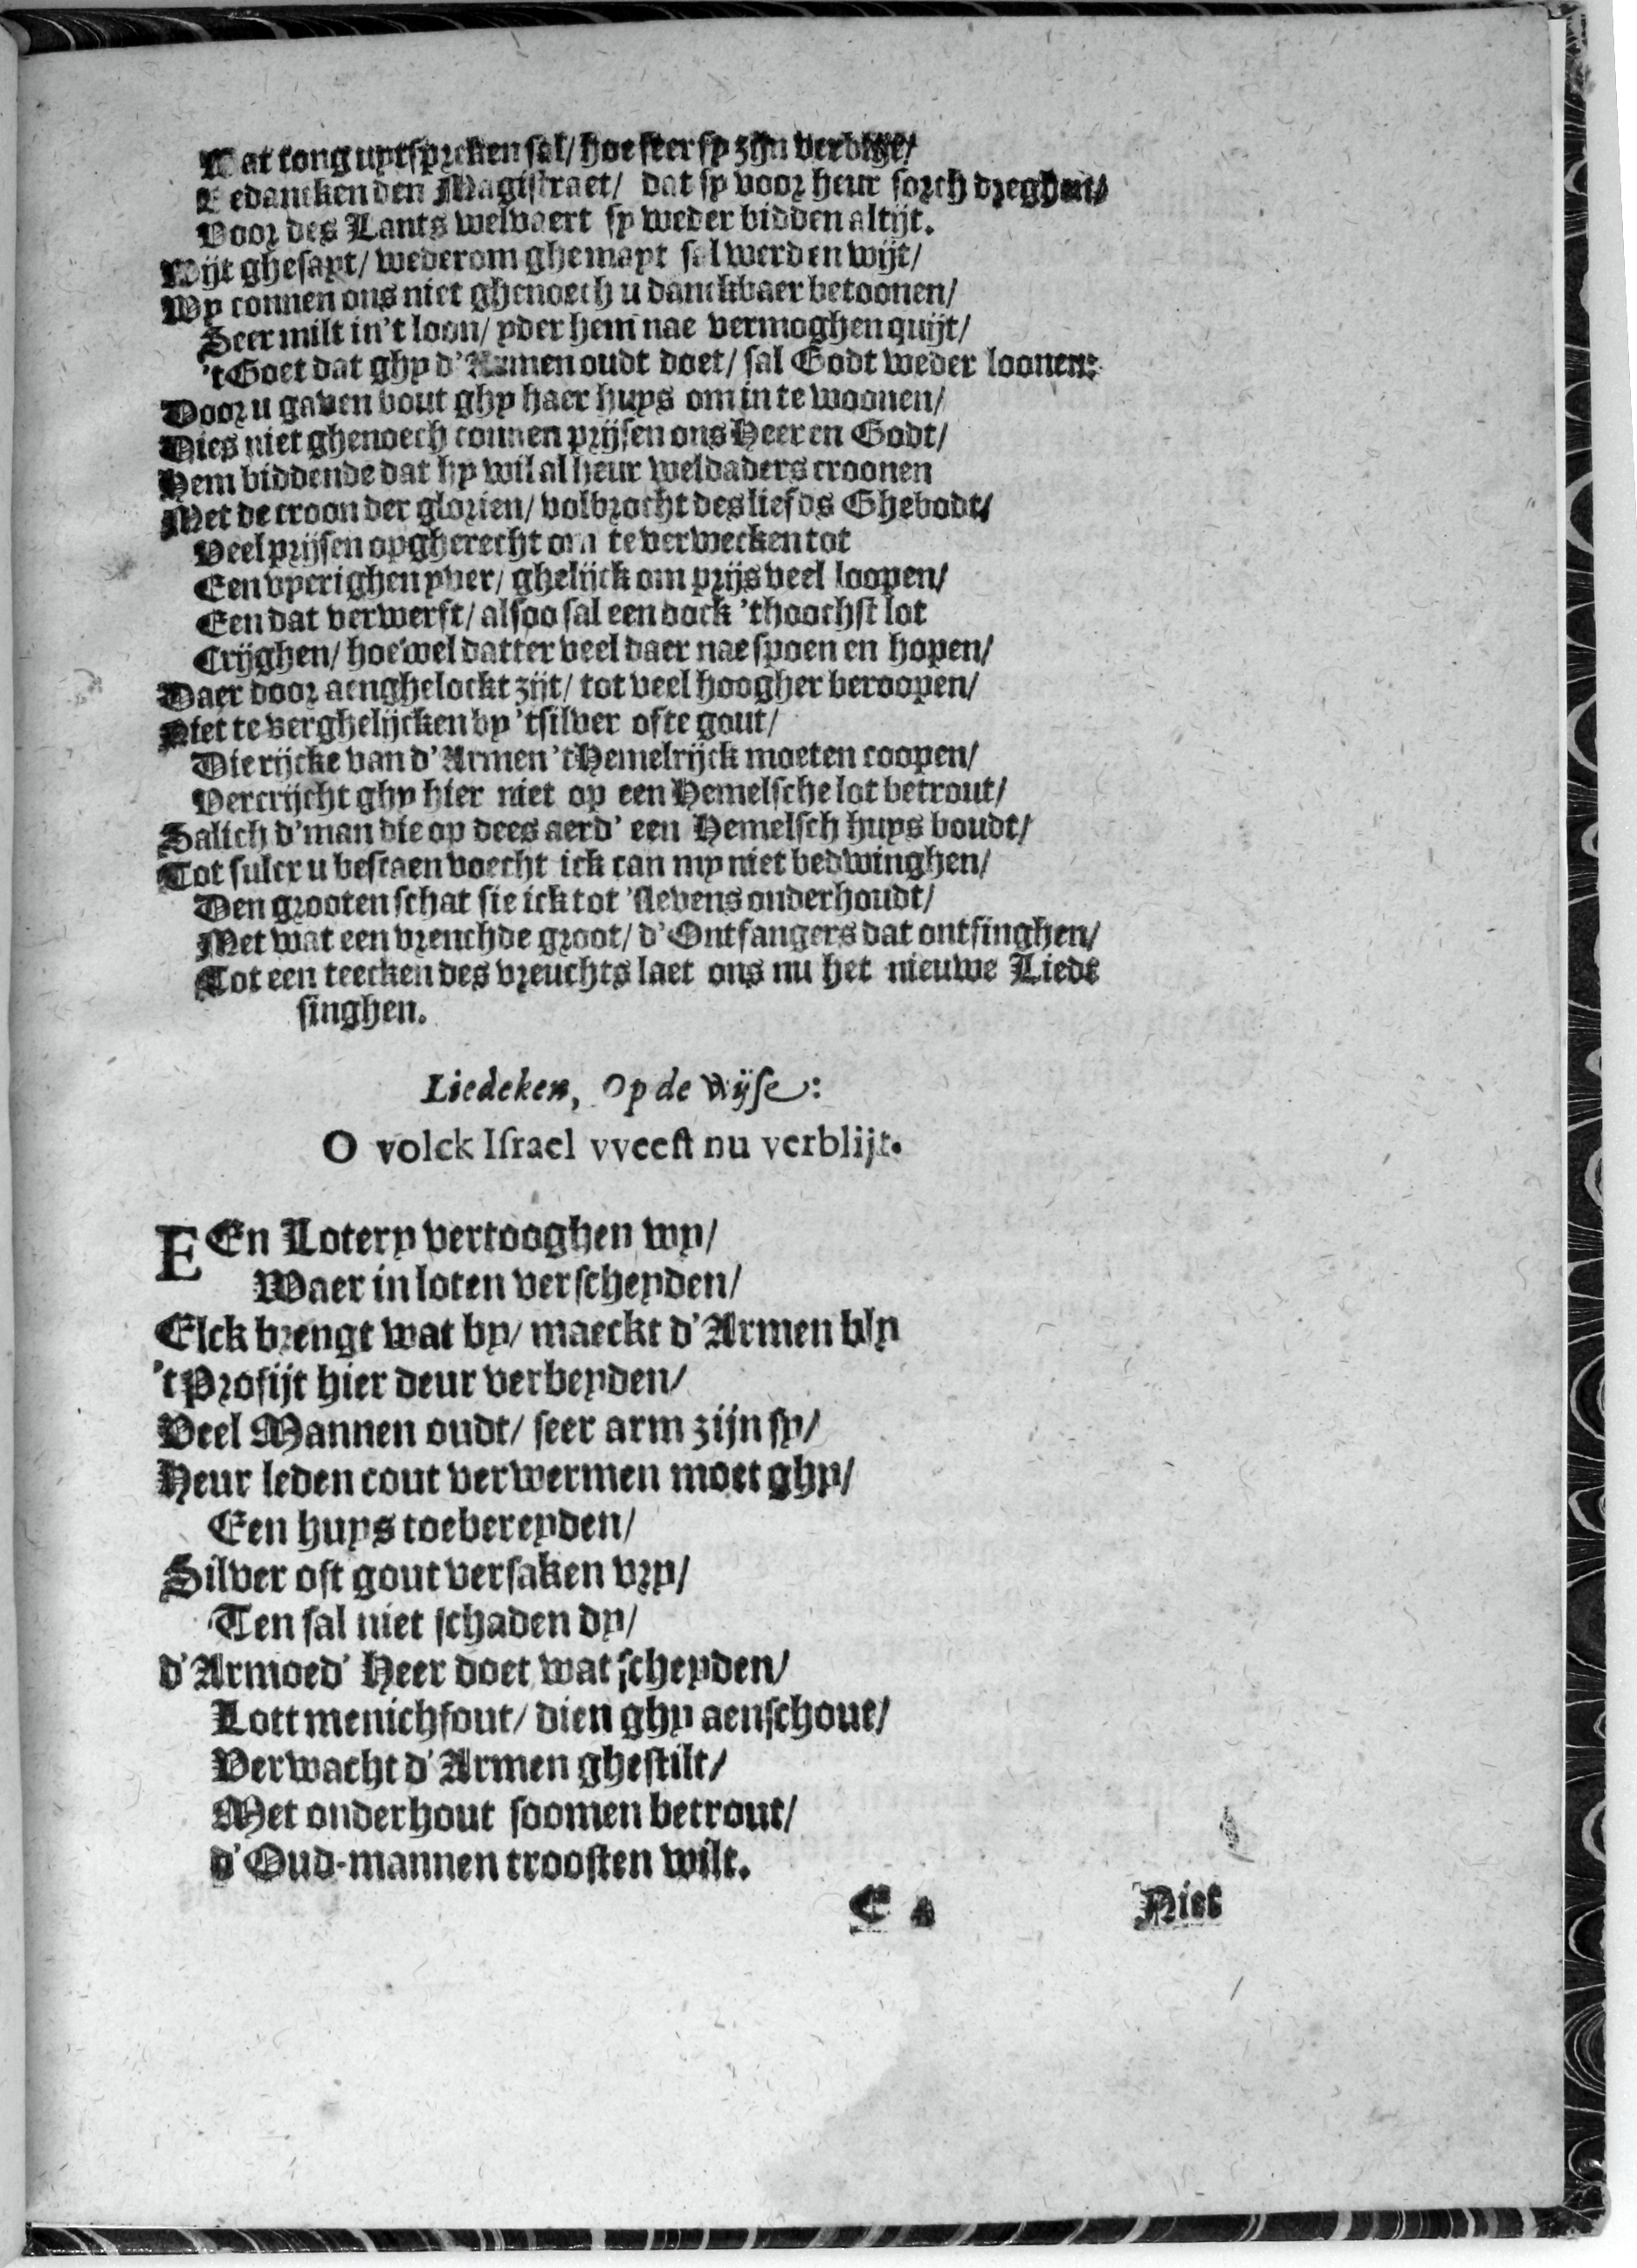 Wat tong uytspreken sal/ hoe seer sy zijn verblijt/
Bedancken den Magistraet/ dat sy voor heur sorch dreghen/
Voor des Lants welvaert sy weder bidden altijt.
Wijt ghesayt/ wederom ghemayt sal werden wijt/
Wy connen ons niet ghenoech u danckbaer betoonen/
Seer milt in't loon/ yder hem nae vermoghen quijt/
't Goet dat ghy d'Armen oudt doet/ sal Godt weder loonen:
Door u gaven bout ghy haer huys om in te woonen/
Dies niet ghenoech connen prijsen ons Heer en Godt/
Hem biddende dat hy wil al heur weldaders croonen
Met de croon der glorien/ volbrocht des liefds Ghebodt/
Veel prijsen opgherecht om te verwecken tot
Een vyerighen yver/ ghelijck om prijs veel loopen/
Een dat verwerft/ alsoo sal een oock 't hoochst lot
Crijghen/ hoe wel datter veel daer nae spoen en hopen/
Daer door aenghelockt zijt/ tot veel hoogher beroopen/
Niet te verghelijcken by 't silver ofte gout/
Die rijcke van d'Armen 't Hemelrijck moeten coopen/
Vercrijcht ghy hier niet op een Hemelsche lot betrout/
Salich d'man die op dees aerd' een Hemelsch huys boudt/
Tot sulcx u bestaen voecht ick can my niet bedwinghen/
Den grooten schat sie ick tot 'slevens onderhoudt/
Met wat een vreuchde groot/ d'Ontfangers dat ontfinghen/
Tot een teecken des vreuchts laet ons nu het nieuwe Liedt
singhen.
Liedeken, Op de wijse:
O volck Israel vveest nu verblijt.
EEn Lotery vertooghen wy/
Waer in loten verscheyden/
Elck brengt wat by/ maeckt d'Armen bly
't Profijt hier deur verbeyden/
Veel Mannen oudt/ seer arm zijn sy/
Heur leden cout verwermen moet ghy/
Een huys toebereyden/
Silver oft gout versaken vry/
Ten sal niet schaden dy/
d'Armoed' Heer doet wat scheyden/
Lott menichfout/ dien ghy aenschout/
Verwacht d'Armen ghestilt/
Met onderhout soomen betrout/
d'Oud-mannen troosten wilt.
C
Niet